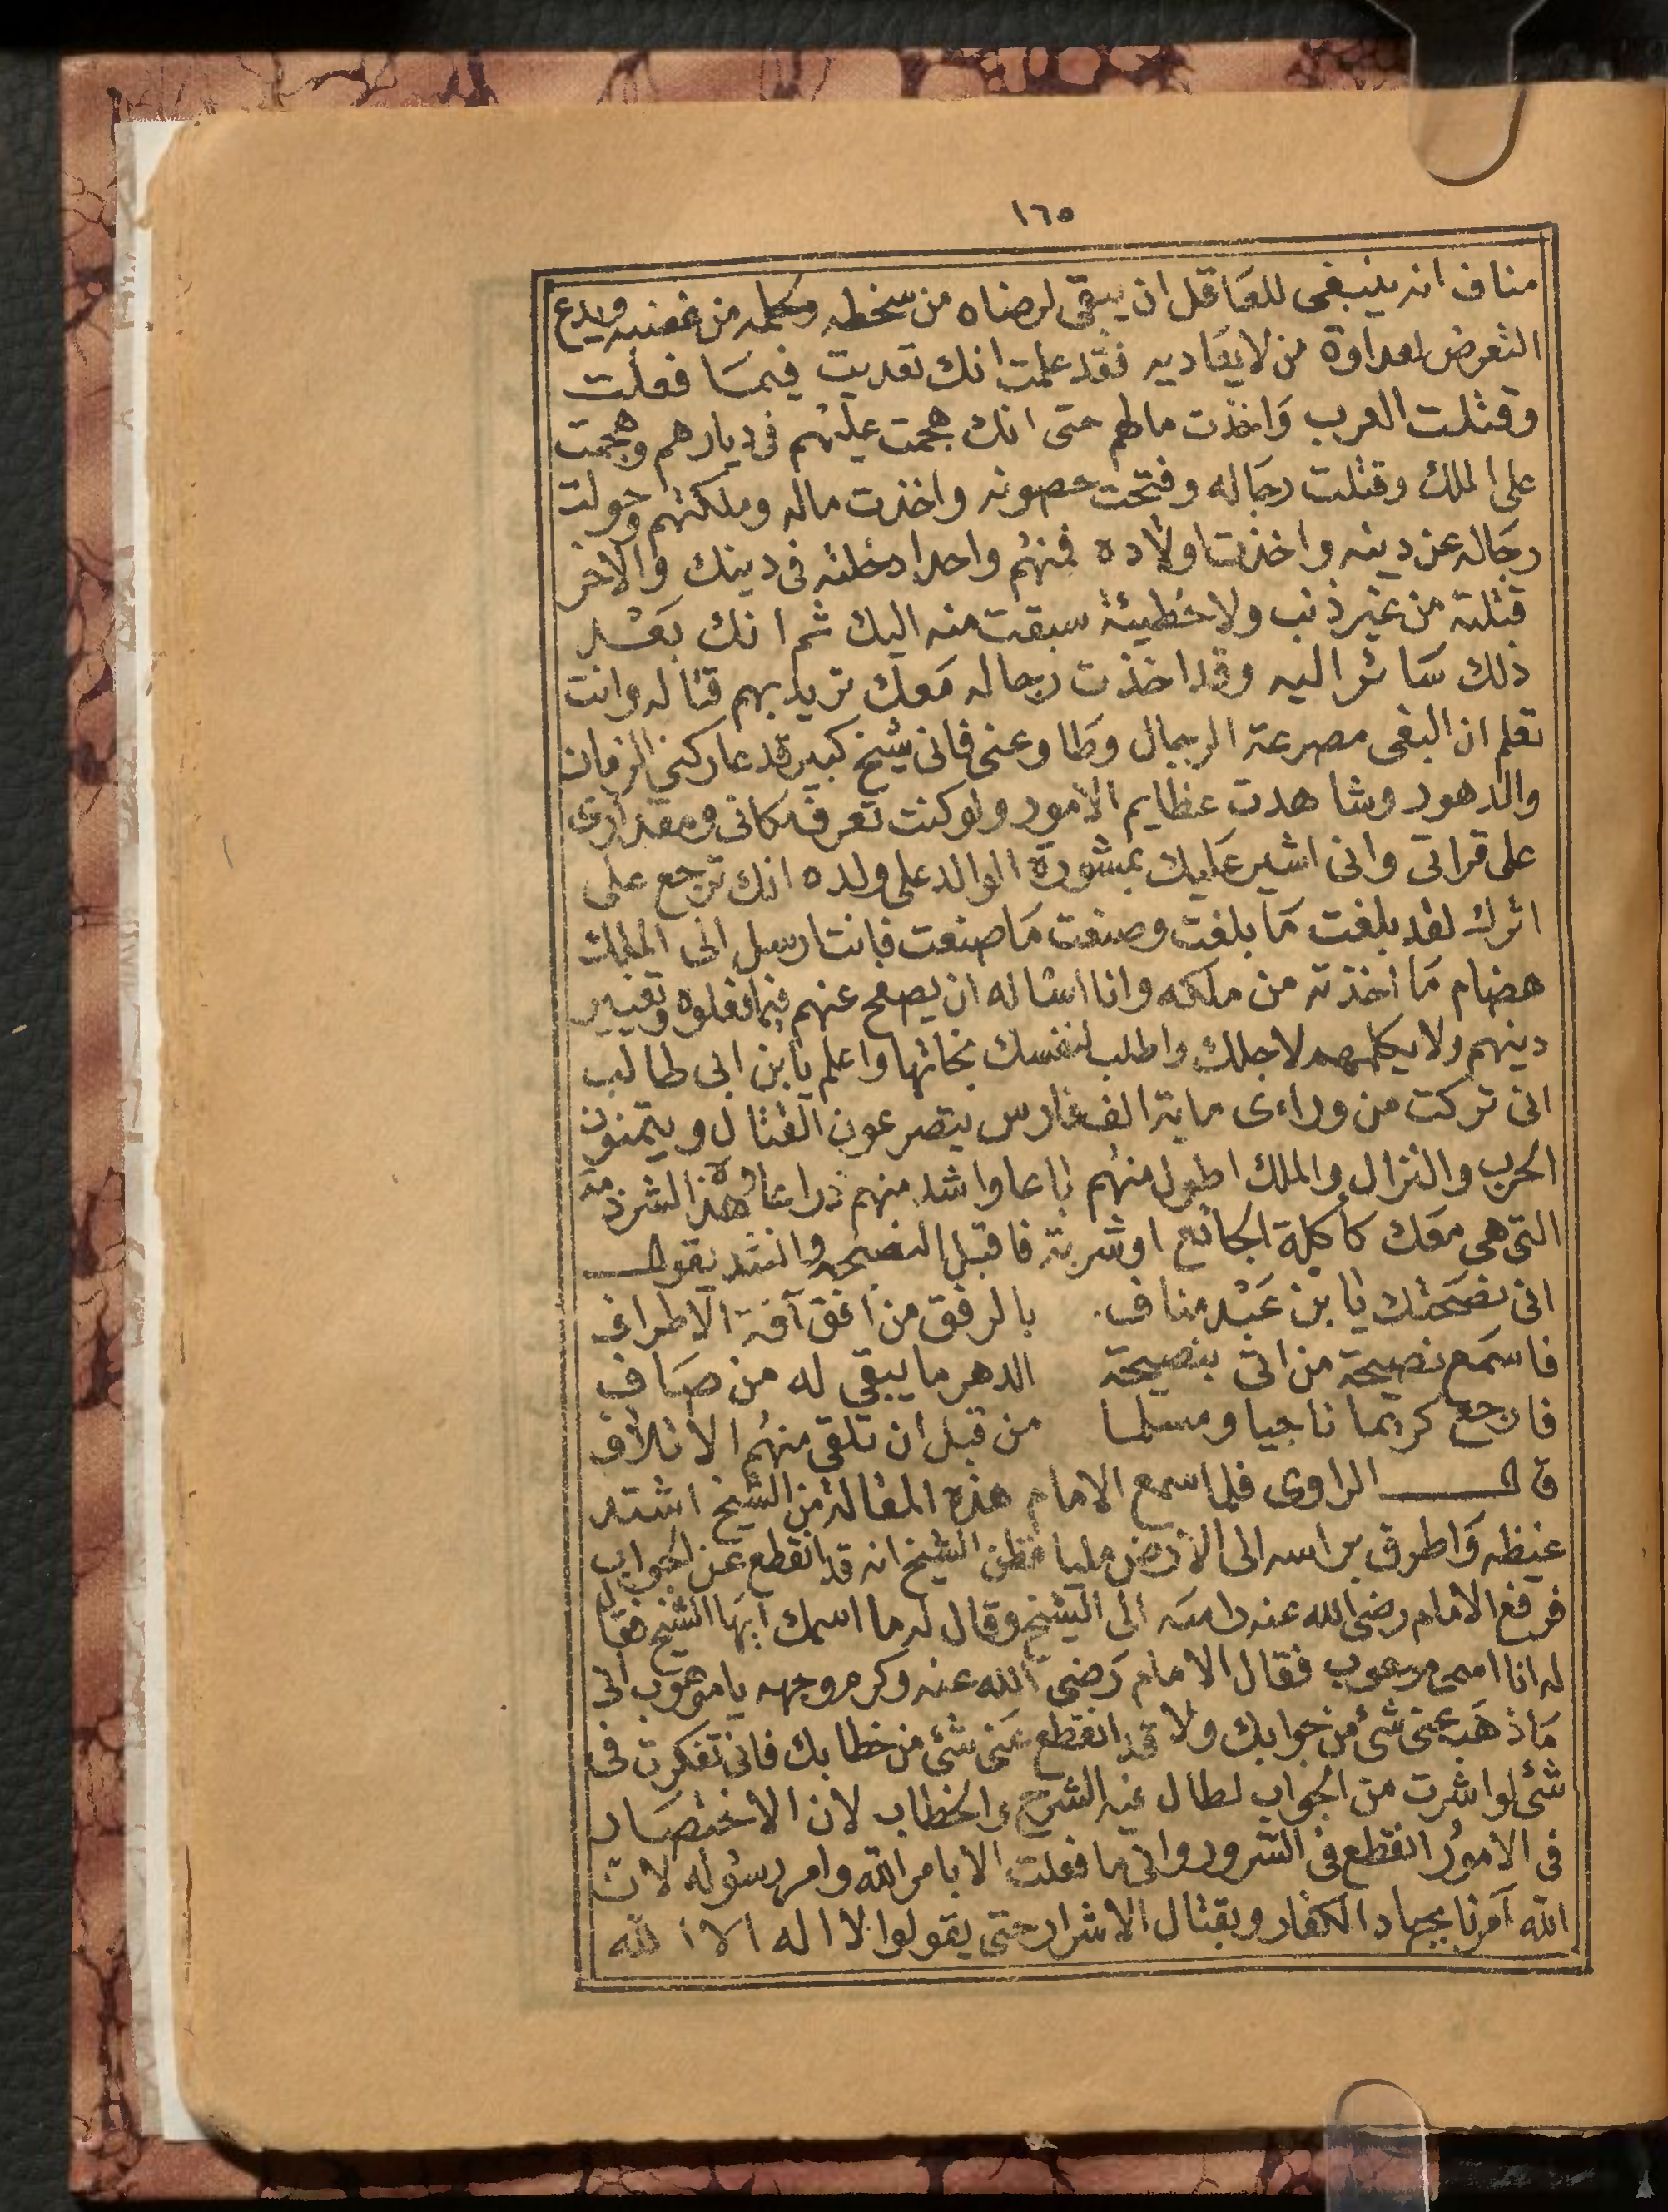 ١٦٥
مناف انه ينبغى للعاقل ان يبقى لرضاه من سخطه وحلمه من غضبه ويدع
التعرض لعداوة من لا يعاديه فقد علمت انك تعديت فيما فعلت
وقتلت العرب واخذت مالهم حتى انك هجمت عليهم فى ديارهم وهجمت
على الملك وقتلت رجاله وفتحت حصونه واخذت ماله وملكتهم وحولت
رجاله عن دينه واخذت اولاده فمنهم واحدا دخلته فى دينك والاخر
قتلته من غير ذنب ولا خطيئة سبقت منه اليك ثم انك بعد
ذلك سائر اليه وقد اخذت رجاله معك تريد بهم قتاله وانت
تعلم ان البغى مصرعة الرجال وطاوعنى فانى شيخ كبير قد عاركنى الزمان
والدهور وشاهدت عظايم الامور ولو كنت تعرف مكانى ومقدارى
على قراتى وانى اشير عليك بمشورة الوالد على ولده انك ترجع على
اثرك لقد بلغت ما بلغت وصنعت ما صنعت فانت ارسل الى الملك
هضام ما اخذته من ملكه وانا اساله ان يصفح عنهم فيما فعلوه وتغيير
دينهم ولا يكلمهم لاجلك واطلب لنفسك نجاتها واعلم يا بن ابى طالب
انى تركت من وراءى ماية الف فارس يتصرعون القتال ويتمنون
الحرب والنزال والملك اطول منهم باعا واشد منهم ذراعا وهذه الشرذمة
التى هى معك كأكلة الجائع او شربة فاقبل النصيحه وانشد يقول
انى نصحتك يا بن عبد مناف . بالرفق من اغق آفة الاطراف
فاسمع نصيحة من اتى بنصيحة الدهر ما يبقى له من صاف
فارجع كريما ناجيا ومسلما من قبل ان تلقى منهم الاتلاف
قال الراوى فلما سمع الامام هذه المقالة من الشيخ اشتد
غيظه واطرق براسه الى الارض مليا فظن الشيخ انه قد انقطع عن الجواب
فرفع الامام رضى الله عنه راسه الى الشيخ وقال له ما اسمك ايها الشيخ فقال
له انا اسمى مرهوب فقال الامام رضى الله عنه وكرم وجهه يا موهوب انى
ما ذهب عنى شئ من جوابك ولا قد انقطع عنى شئ من خطابك فانى تفكرت فى
شئ لو اشرت من الجواب لطال فيه الشرح والخطاب لان الاختصار
فى الامور انقطع فى الشرور وانى ما فعلت الا بامر الله وامر رسوله لان
الله آمرنا بجهاد الكفار وبقتال الاشرار حتى يقولوا لا اله الا الله